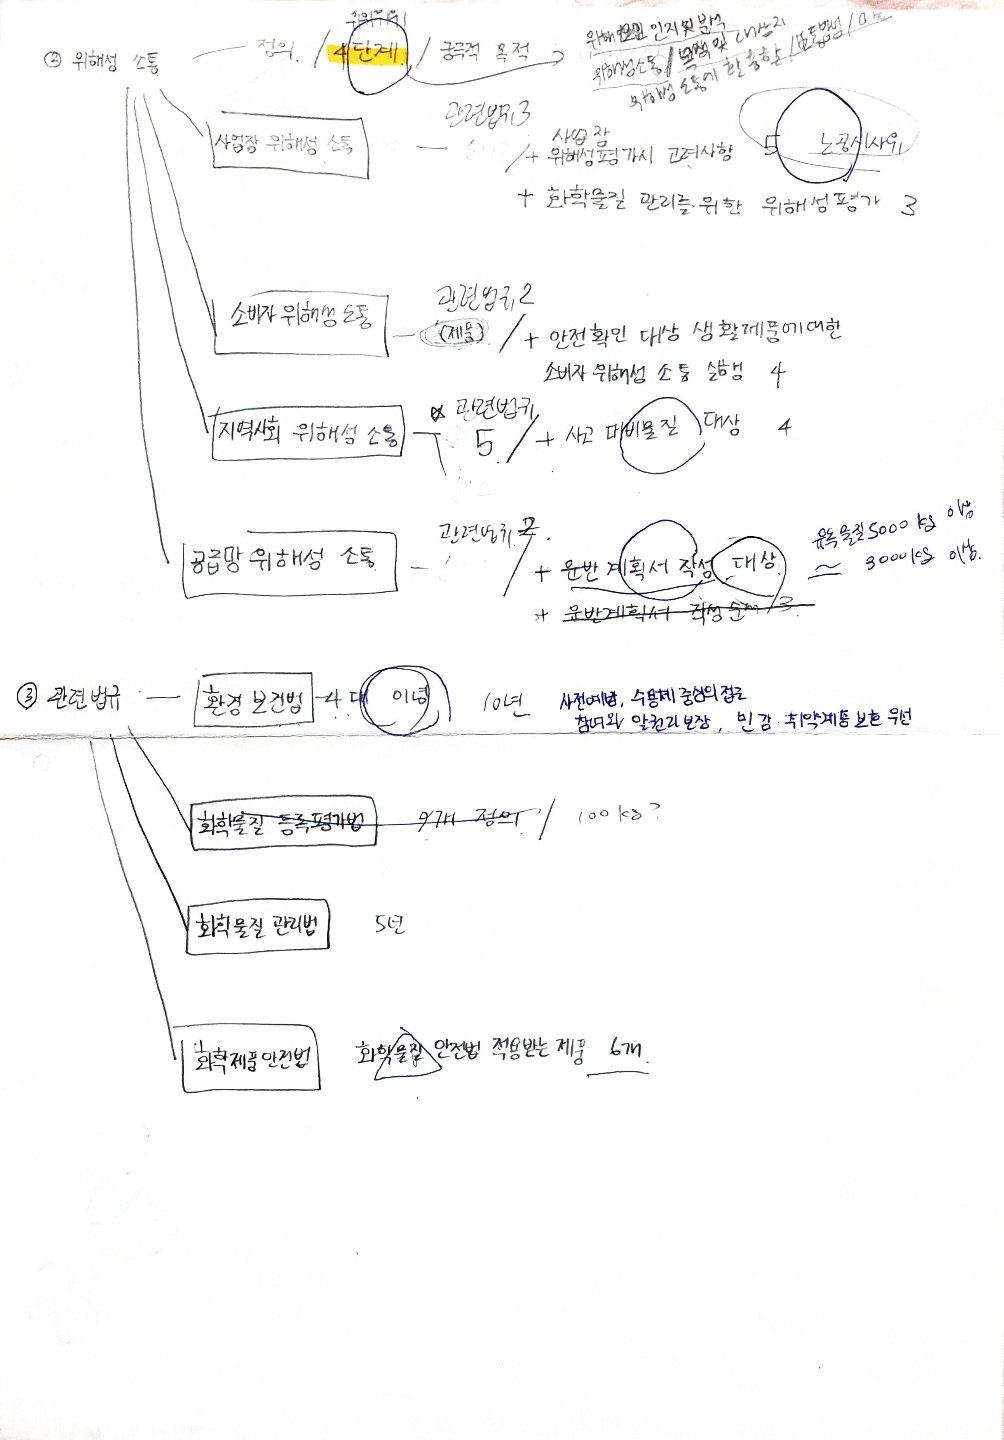 ② 위해성 소통 — 정의 / 4단계 / 궁극적 목적
위해 인지 및 분석
위해성소통 / 목적 및 대상자
위해성 소통에 활용할
사업장 위해성 소통 — 관련법규 3 / + 사업장 위해성평가시 고려사항 5 노공시사위
+ 화학물질 관리를 위한 위해성평가 3
소비자 위해성 소통 — 관련법규 2 (제품) / + 안전확인 대상 생활제품에 대한
소비자 위해성 소통 실행 4
지역사회 위해성 소통 — 관련법규 5 / + 사고 대비물질 대상 4
공급망 위해성 소통 — 관련법규 2 / + 운반계획서 작성 대상
유독물질 5000kg 이상
~ 3000kg 이상.
+ 운반계획서 작성 순서 / 3
③ 관련법규 — 환경보건법 — 4대 이념 10년
사전예방, 수용체 중심의 접근
참여와 알권리 보장, 민감·취약계층 보호 우선
화학물질 등록평가법 9개 정의 / 100kg?
화학물질 관리법 5년
화학제품안전법 화학물질 안전법 적용받는 제품 6개